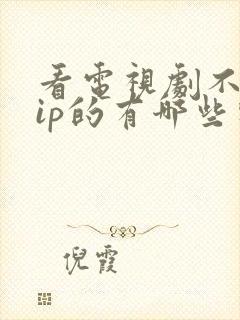 看電視劇不
ip的有哪些
倪霞